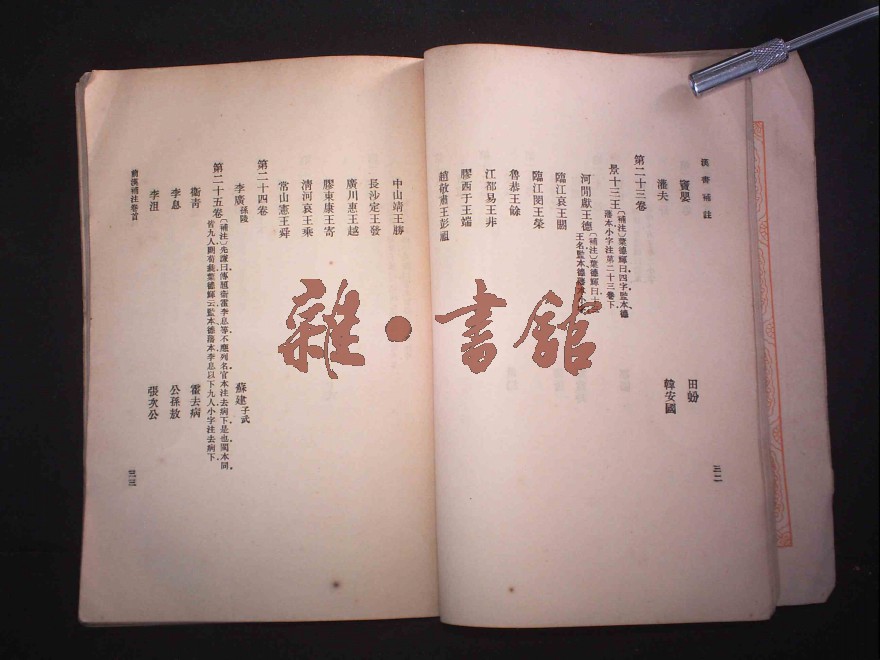 漢書補註
竇嬰
田蚡
灌夫
韓安國
第二十三卷
景十三王
〔補注〕葉德輝曰四字監本德
藩本小字注第二十三卷下
河閒獻王德
臨江哀王閼
臨江閔王榮
魯恭王餘
江都易王非
膠西于王端
趙敬肅王彭祖
三二
雜·書館
中山靖王勝
長沙定王發
廣川惠王越
膠東康王寄
清河哀王乘
常山憲王舜
第二十四卷
李廣孫陵
蘇建子武
第二十五卷
〔補注〕先謙曰傳題衞霍李息等不應列名官本注去病下是也閩本同
皆九人閒荀彘葉德輝云監本德藩本李息以下九人小字注去病下
衞青
霍去病
李息
公孫敖
李沮
張次公
前漢補注卷首
三三